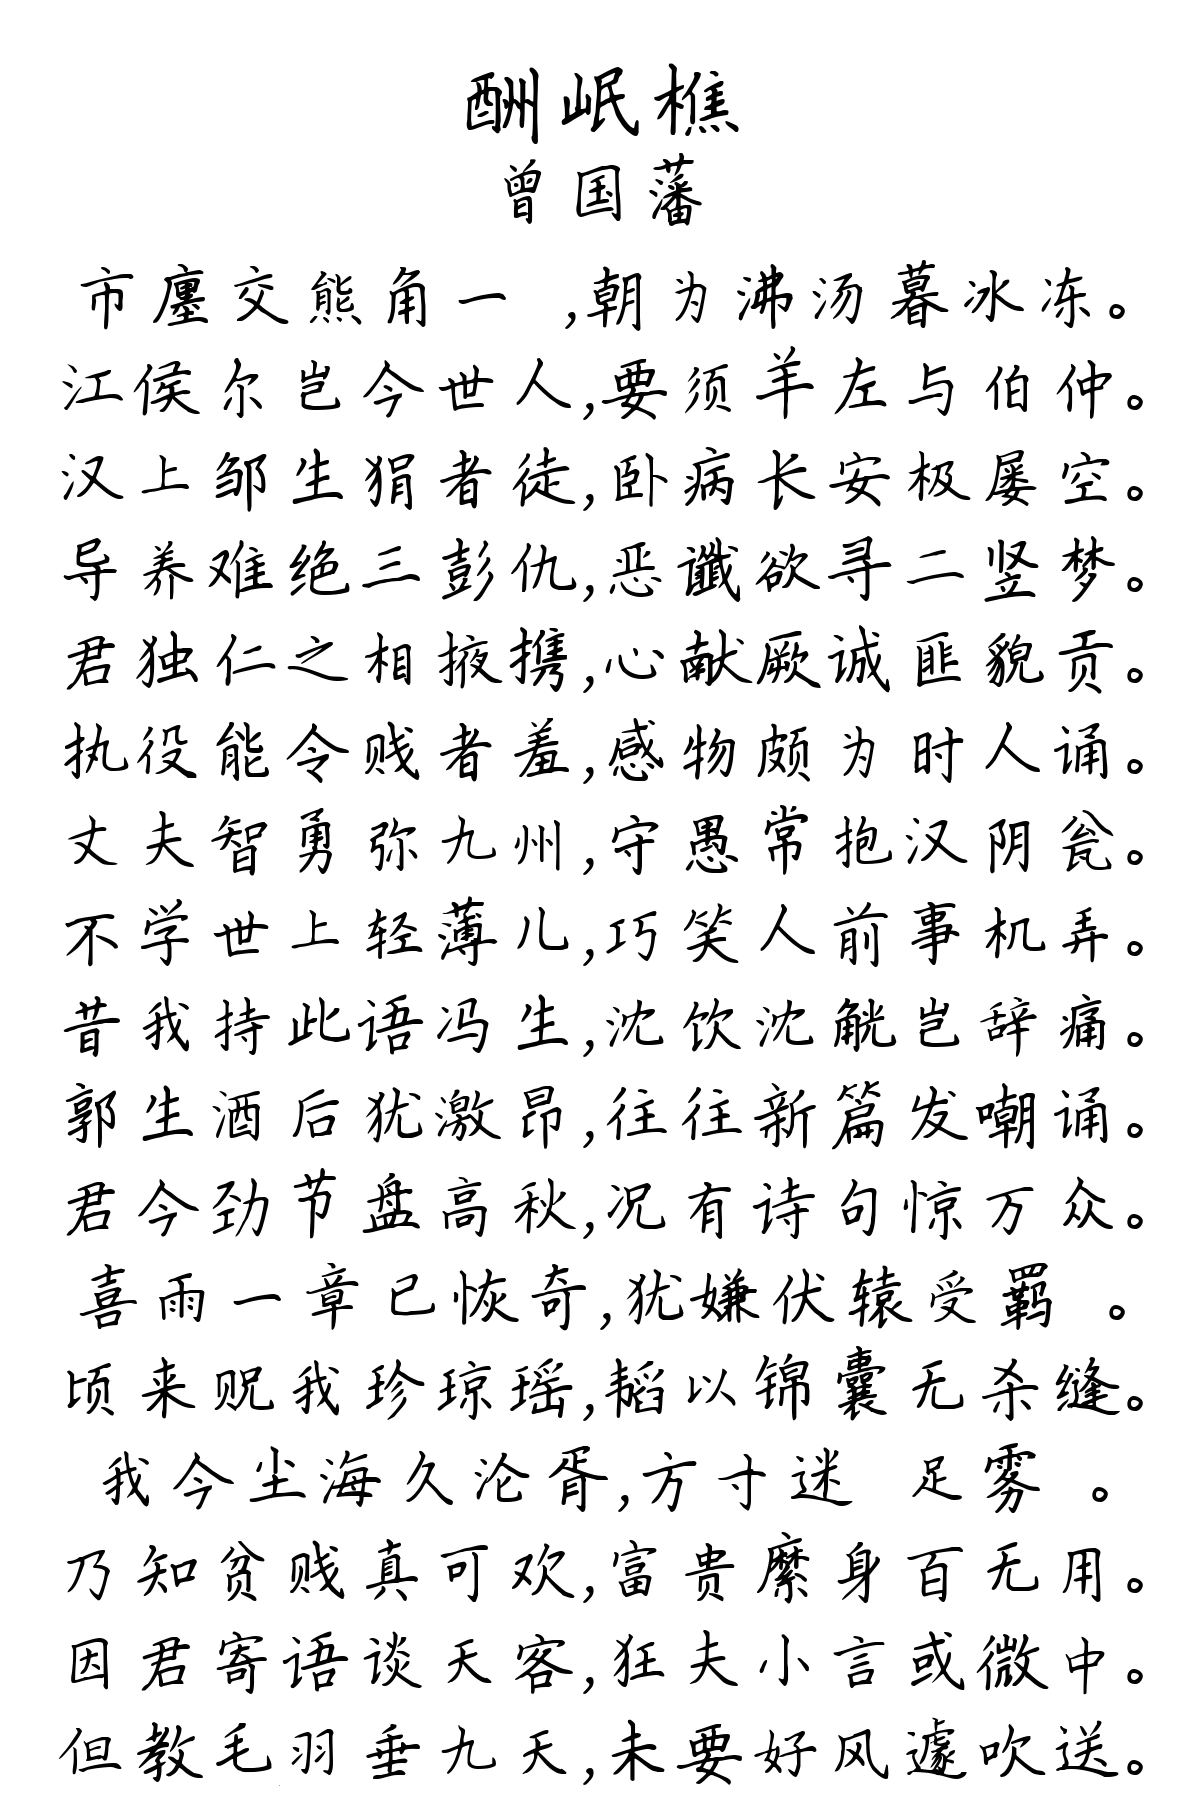 酬岷樵
曾国藩
市廛交熊角一 ,朝为沸汤暮冰冻。
江侯尔岂今世人,要须羊左与伯仲。
汉上邹生狷者徒,卧病长安极屡空。
导养难绝三彭仇,恶谶欲寻二竖梦。
君独仁之相掖携,心献厥诚匪貌贡。
执役能令贱者羞,感物颇为时人诵。
丈夫智勇弥九州,守愚常抱汉阴瓮。
不学世上轻薄儿,巧笑人前事机弄。
昔我持此语冯生,沈饮沈觥岂辞痛。
郭生酒后犹激昂,往往新篇发嘲诵。
君今劲节盘高秋,况有诗句惊万众。
喜雨一章已恢奇,犹嫌伏辕受羁 。
顷来贶我珍琼瑶,韬以锦囊无杀缝。
我今尘海久沦胥,方寸迷 足雾 。
乃知贫贱真可欢,富贵縻身百无用。
因君寄语谈天客,狂夫小言或微中。
但教毛羽垂九天,未要好风遽吹送。